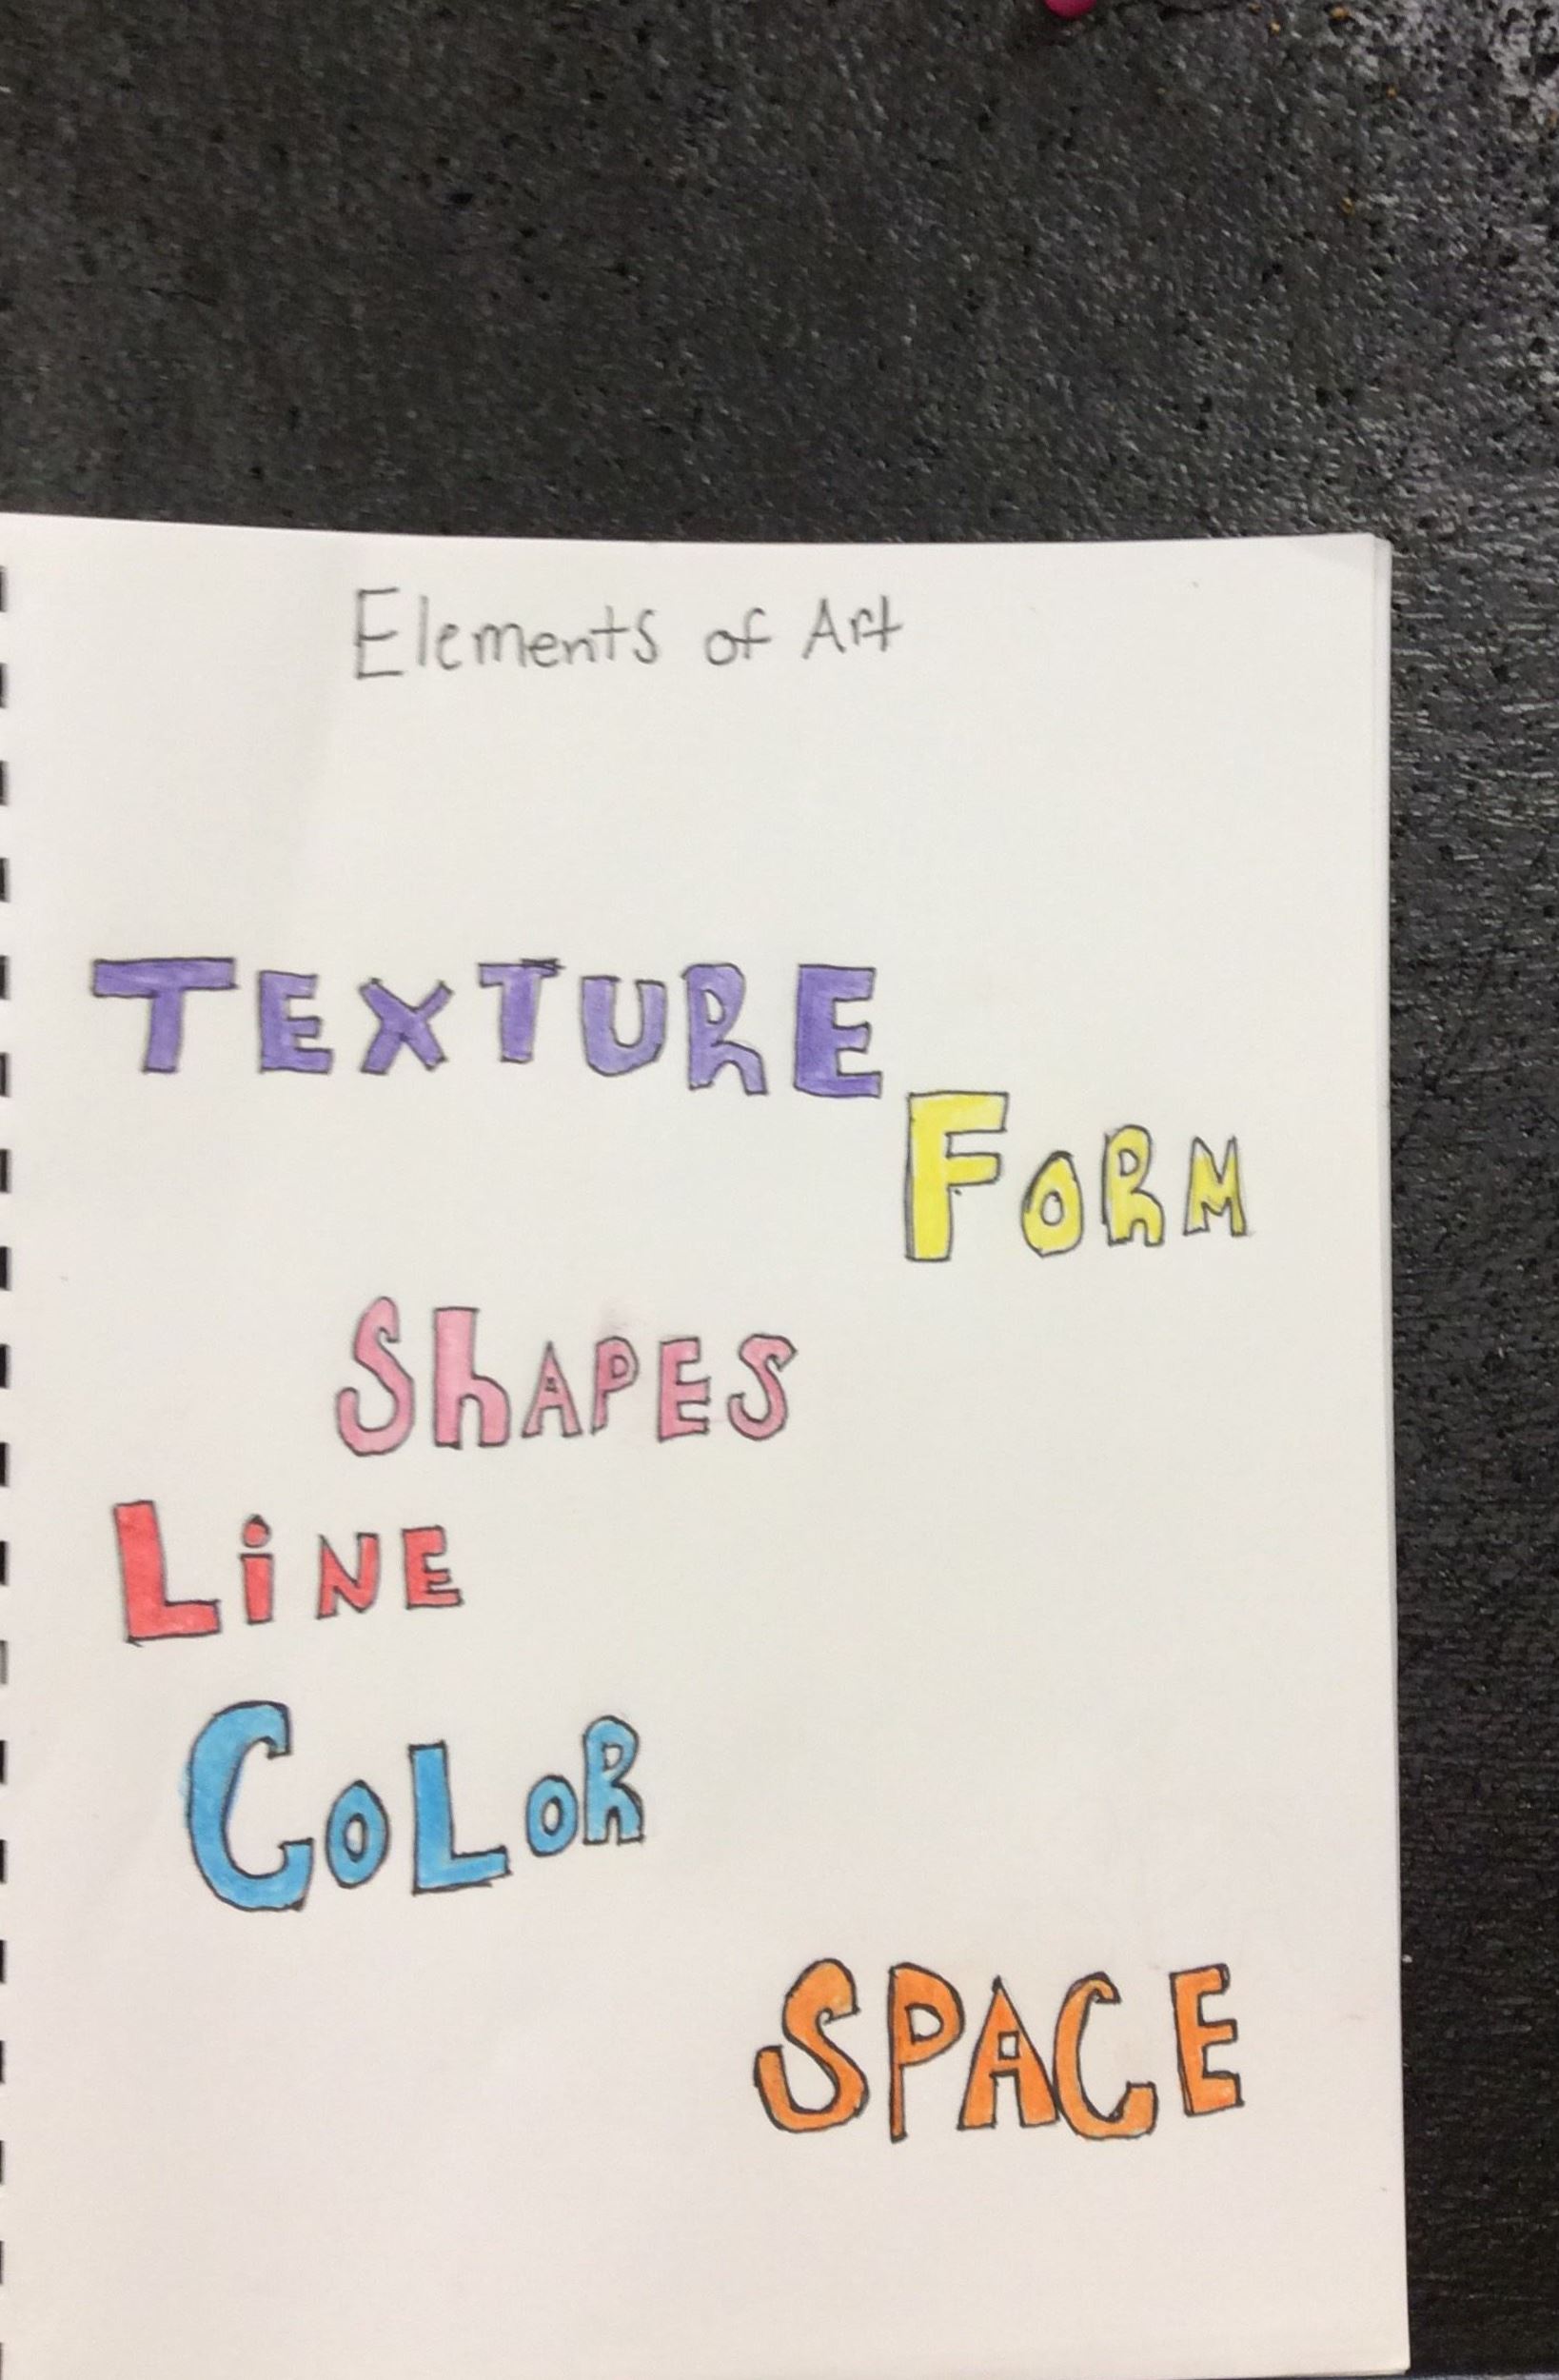 Elements of Art
TEXTURE
FORM
ShAPES
LiNE
COLOR
SPACE